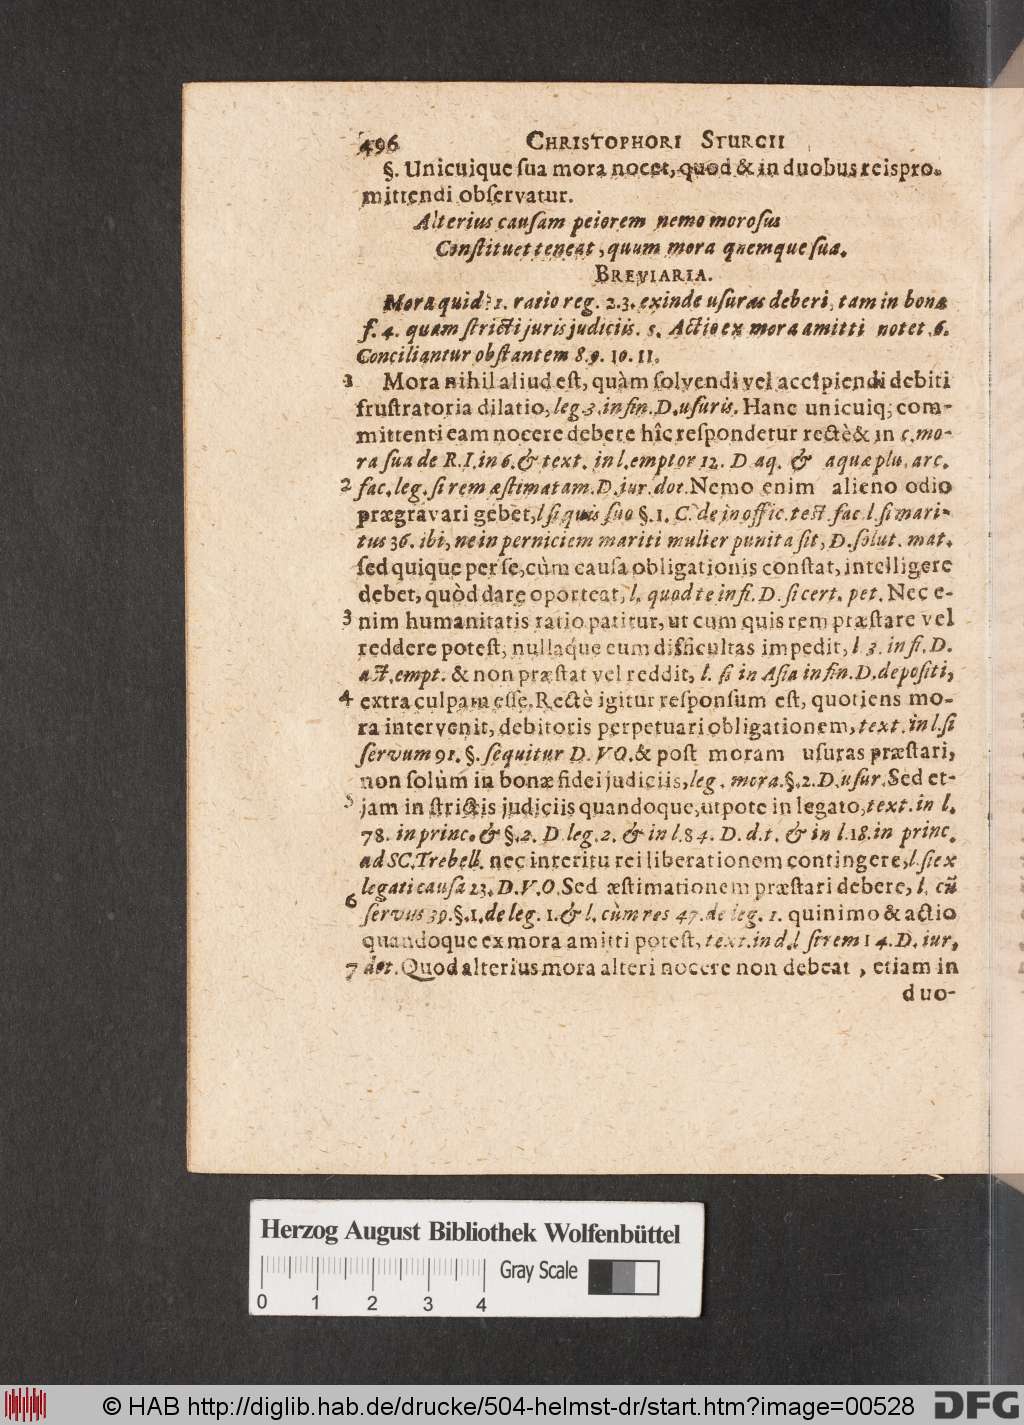 496 CHRISTOPHORI STURCII
§. Unicuique ſua mora nocet, quod & in duobus reis pro-
mittendi obſervatur.
Alterius cauſam peiorem nemo moroſus
Conſtituet teneat, quum mora quemque ſua.
BREVIARIA.
Mora quid? 1. ratio reg. 2.3. exinde uſuras deberi, tam in bonæ
f. 4. quam ſtricti juris judiciis. 5. Actio ex mora amitti notet. 6.
Conciliantur obſtantem 8.9. 10. 11.
1 Mora nihil aliud eſt, quàm ſolvendi vel accipiendi debiti
fruſtratoria dilatio, leg. 3. in fin. D. uſuris. Hanc unicuiq; com-
mittenti eam nocere debere hîc reſpondetur rectè & in c. mo-
ra ſua de R. I. in 6. & text. in l. emptor 12. D aq. & aquæ plu. arc.
2 fac. leg. ſi rem æſtimatam. D. jur. dot. Nemo enim alieno odio
prægravari gebet, l ſi quis ſuo §. 1. C. de inoffic. teſt. fac l. ſi mari-
tus 36. ibi, ne in perniciem mariti mulier punita ſit, D. ſolut. mat.
ſed quique per ſe, cùm cauſa obligationis conſtat, intelligere
debet, quòd dare oporteat, l. quod te in fi. D. ſi cert. pet. Nec e-
3 nim humanitatis ratio patitur, ut cum quis rem præſtare vel
reddere poteſt, nullaque eum difficultas impedit, l 3. in fi. D.
act. empt. & non præſtat vel reddit, l. ſi in Aſia in fin. D. depoſiti,
4 extra culpam eſſe. Rectè igitur reſponſum eſt, quotiens mo-
ra intervenit, debitoris perpetuari obligationem, text. in l. ſi
ſervum 91. §. ſequitur D. VO. & poſt moram uſuras præſtari,
non ſolùm in bonæ fidei judiciis, leg. mora. §. 2. D. uſur. Sed et-
5 jam in ſtrictis judiciis quandoque, utpote in legato, text. in l.
78. in princ. & §. 2. D leg. 2. & in l. 84. D. d. t. & in l. 18. in princ.
ad SC. Trebell. nec interitu rei liberationem contingere, l. ſi ex
legati cauſa 23. D. V. O. Sed æſtimationem præſtari debere, l. cũ
6 ſervus 39. §. 1. de leg. 1. & l. cùm res 47. de leg. 1. quinimo & actio
quandoque ex mora amitti poteſt, text. in d. l ſi rem 14. D. iur,
7 dot. Quod alterius mora alteri nocere non debeat, etiam in
duo-
Herzog August Bibliothek Wolfenbüttel
Gray Scale
0 1 2 3 4
© HAB http://diglib.hab.de/drucke/504-helmst-dr/start.htm?image=00528
DFG